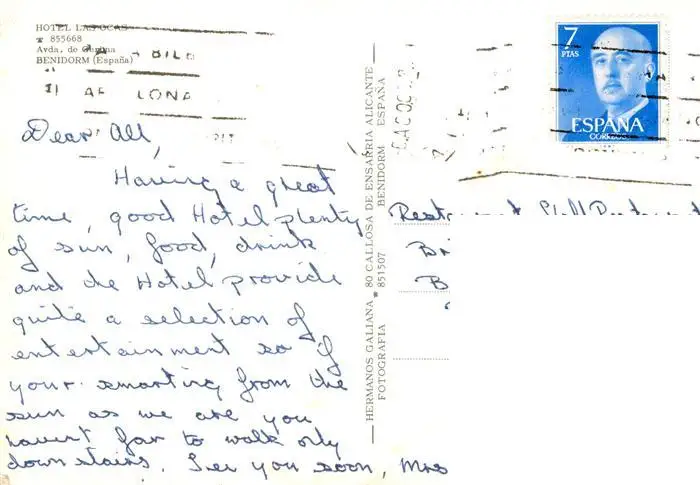 HOTEL LAS OCAS
☎ 855668
Avda. de
BENIDORM (España)
7
PTAS
ESPAÑA
CORREOS
Dear All,
Having a great
time, good Hotel plenty
of sun, food, drink
and the Hotel provide
quite a selection of
entertainment so if
your smarting from the
sun as we are you
havent far to walk only
down stairs. See you soon, Mrs
HERMANOS GALIANA ☎ 80 CALLOSA DE ENSARRIA ALICANTE
FOTOGRAFIA 851507 BENIDORM ESPAÑA